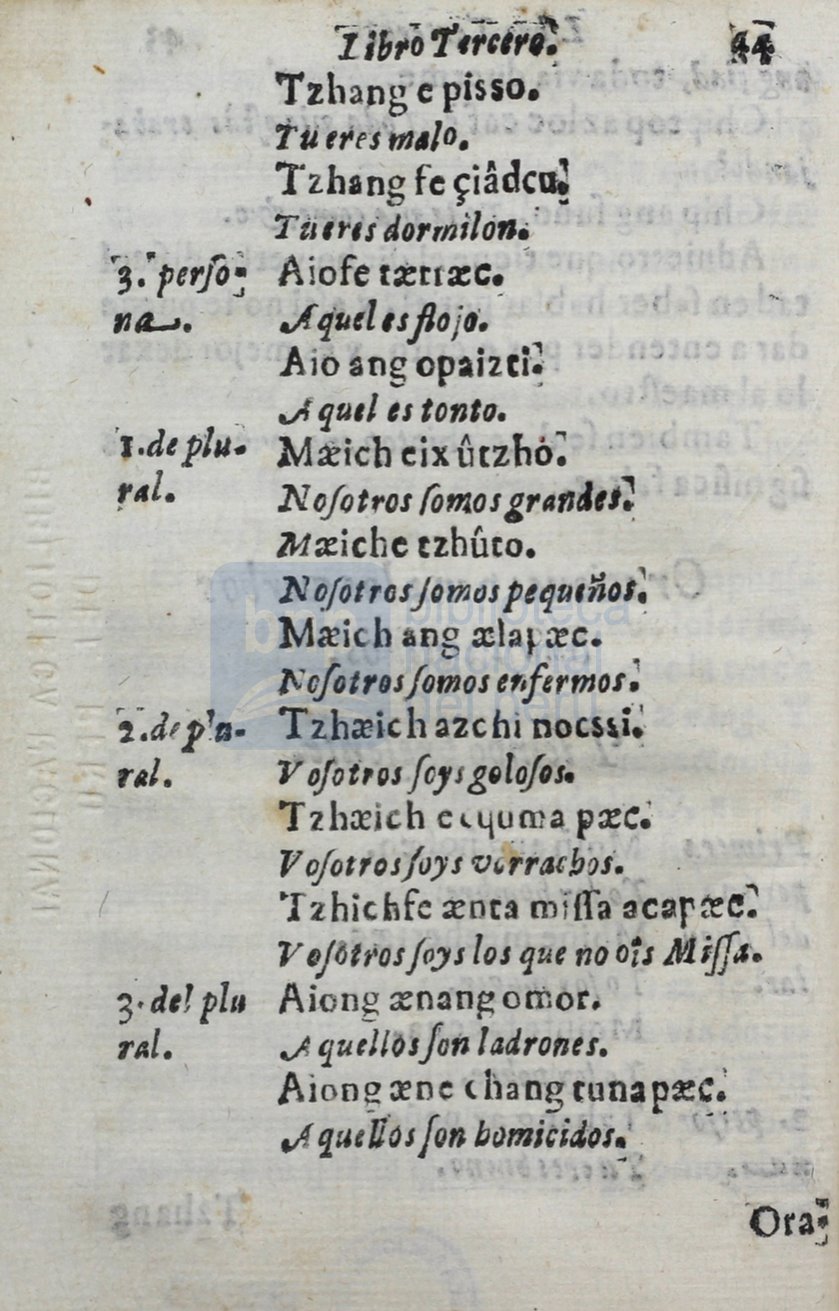 Libro Tercero. 44
Tzhang e pisso.
Tu eres malo.
Tzhang fe çiâdcu.
Tu eres dormilon.
3. perso- Aiofe tætiæc.
na. Aquel es flojo.
Aio ang opaizti.
Aquel es tonto.
1. de plu- Mæich eix ûtzhò.
ral. Noſotros ſomos grandes.
Mæiche tzhûto.
Noſotros ſomos pequeños.
Mæich ang ælapæc.
Noſotros ſomos enfermos.
2. de plu- Tzhæich azchi nocssi.
ral. Voſotros ſoys goloſos.
Tzhæich ecquma pæc.
Voſotros ſoys vorrachos.
Tzhichfe ænta miſſa acapæc.
Voſotros ſoys los que no ois Miſſa.
3. del plu Aiong ænang omor.
ral. Aquellos ſon ladrones.
Aiong æne chang tunapæc.
Aquellos ſon homicidos.
Ora-
biblioteca
nacional
del Perú